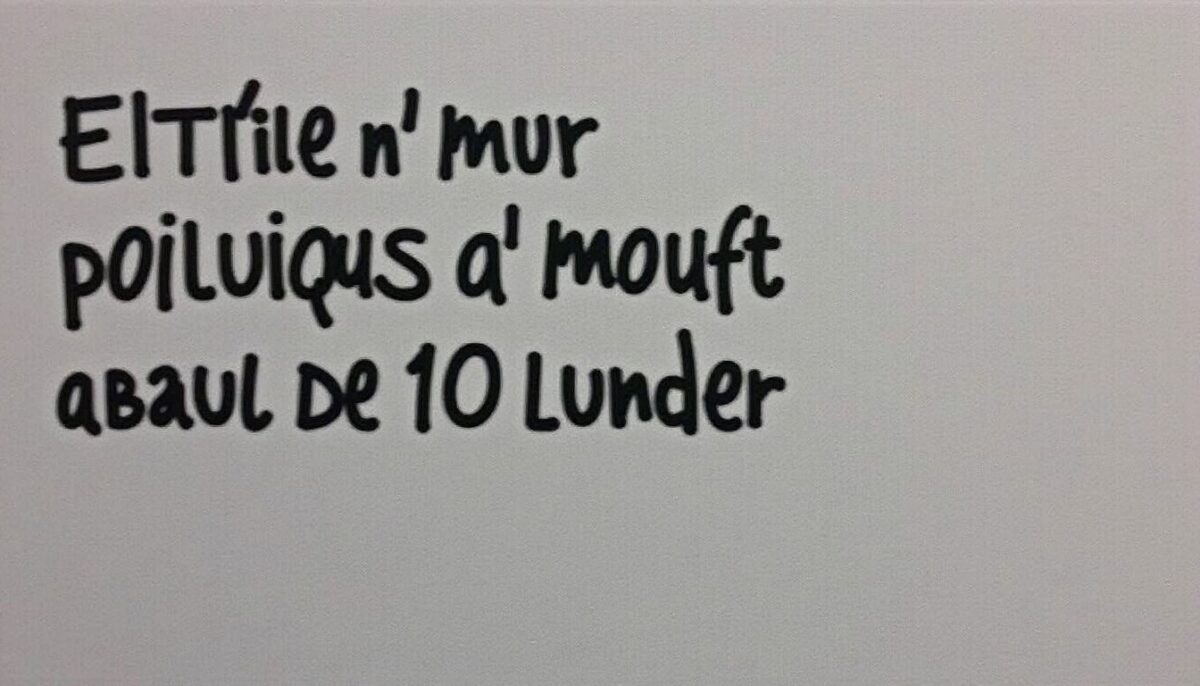 ElTríle n' mur
poiluiqus a' mouft
aBaul De 10 Lunder